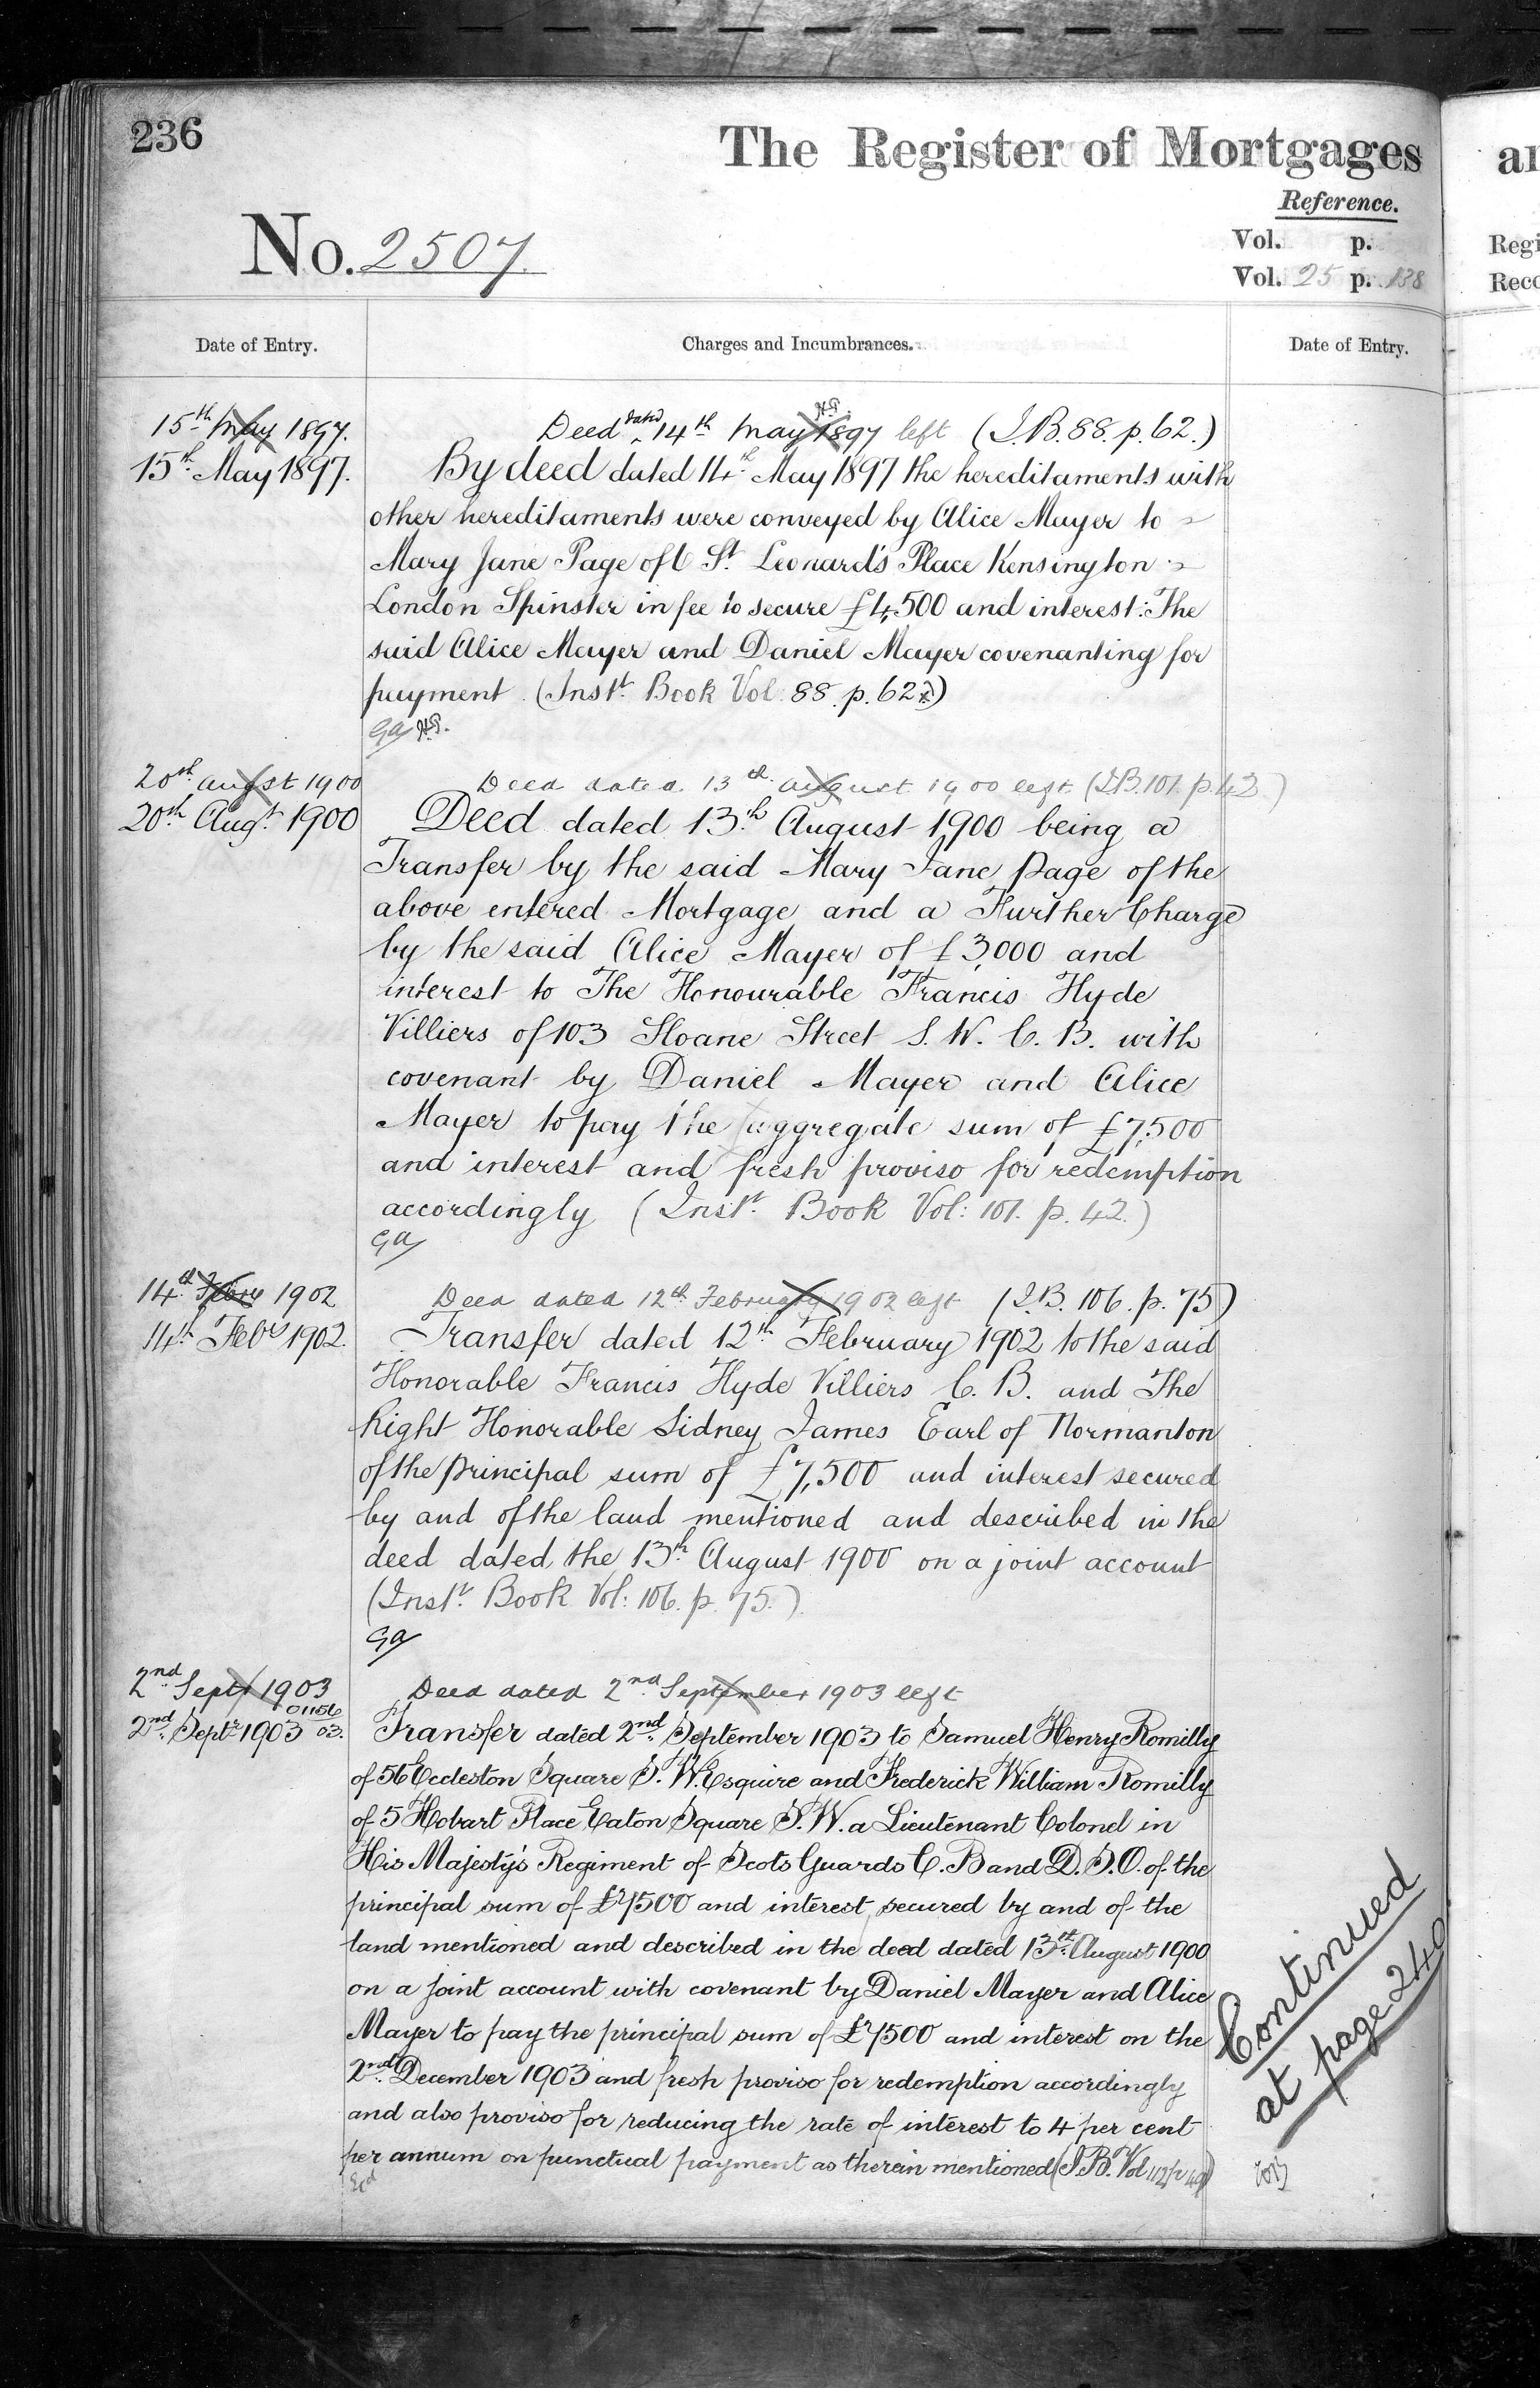 236
The Register of Mortgages
Reference.
No. 2507.
Vol. p.
Vol. 25 p. 138
Date of Entry.
Charges and Incumbrances.
Date of Entry.
15th May 1897. Deed dated 14th May 1897 left (I.B. 88. p. 62.)
H.G.
15th May 1897. By deed dated 14th May 1897 the hereditaments with
other hereditaments were conveyed by Alice Mayer to
Mary Jane Page of 6 St. Leonard's Place Kensington
London Spinster in fee to secure £4,500 and interest: The
said Alice Mayer and Daniel Mayer covenanting for
payment. (Inst. Book Vol: 88. p. 62.)
GA H.G.
20th August 1900 Deed dated 13th August 1900 left (I.B. 101. p. 42.)
20th Augt. 1900 Deed dated 13th August 1900 being a
Transfer by the said Mary Jane Page of the
above entered Mortgage and a Further Charge
by the said Alice Mayer of £3,000 and
interest to The Honourable Francis Hyde
Villiers of 103 Sloane Street S.W. C.B. with
covenant by Daniel Mayer and Alice
Mayer to pay the aggregate sum of £7,500
and interest and fresh proviso for redemption
accordingly (Inst. Book Vol: 101. p. 42.)
GA
14th Febry 1902 Deed dated 12th February 1902 left (I.B. 106. p. 75)
14th Feby 1902. Transfer dated 12th February 1902 to the said
Honorable Francis Hyde Villiers C.B. and The
Right Honorable Sidney James Earl of Normanton
of the principal sum of £7,500 and interest secured
by and of the land mentioned and described in the
deed dated the 13th August 1900 on a joint account
(Inst. Book Vol: 106. p. 75.)
GA
2nd Septr 1903 Deed dated 2nd September 1903 left
01156
2nd Septr 1903 03. Transfer dated 2nd September 1903 to Samuel Henry Romilly
of 56 Eccleston Square S.W. Esquire and Frederick William Romilly
of 5 Hobart Place Eaton Square S.W. a Lieutenant Colonel in
His Majesty's Regiment of Scots Guards C.B and D.S.O. of the
principal sum of £7500 and interest secured by and of the
land mentioned and described in the deed dated 13th August 1900
on a joint account with covenant by Daniel Mayer and Alice
Mayer to pay the principal sum of £7500 and interest on the
2nd December 1903 and fresh proviso for redemption accordingly
and also proviso for reducing the rate of interest to 4 per cent
per annum on punctual payment as therein mentioned (I.B. Vol 112 p 49)
Continued
at page 240
an
Regi
Reco